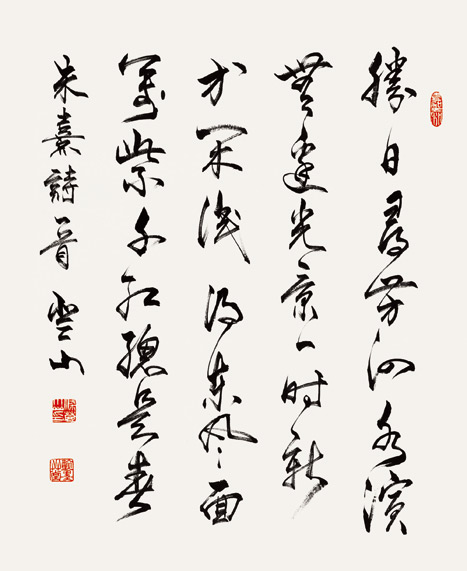 勝日尋芳泗水濱
無邊光景一時新
等閑識得東風面
萬紫千紅總是春
朱熹詩一首 雲山